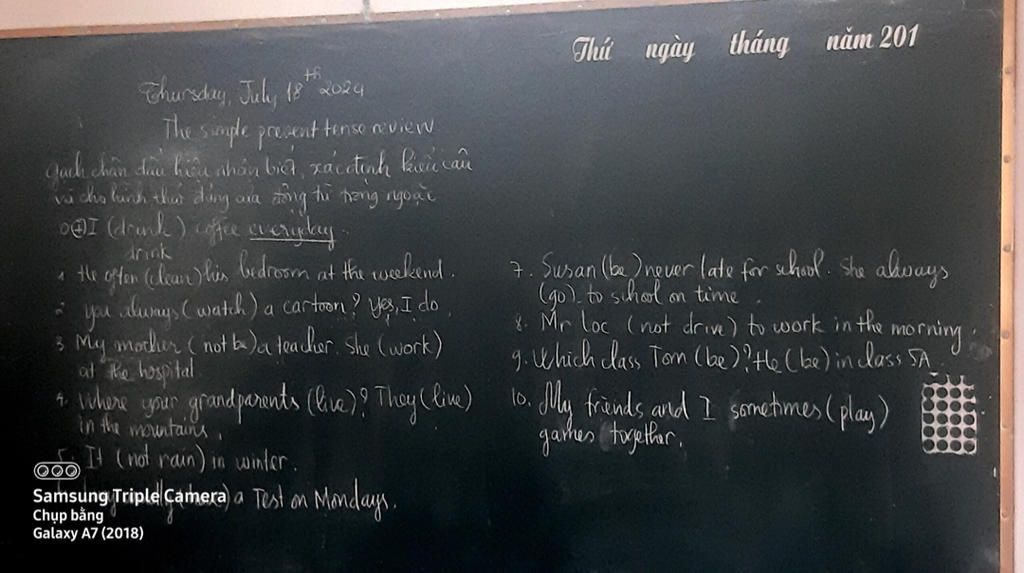 Thứ ngày tháng năm 201
Thursday, July 18th 2024
The simple present tense review
gạch chân dấu hiệu nhận biết, xác định kiểu câu
và cho hình thức đúng của động từ trong ngoặc
0 (+) I (drink) coffee everyday.
drink
1. He often (clean) his bedroom at the weekend.
2. you always (watch) a cartoon? Yes, I do.
3. My mother (not be) a teacher. She (work)
at the hospital
4. Where your grandparents (live)? They (live)
in the mountains.
5. It (not rain) in winter.
a Test on Mondays.
7. Susan (be) never late for school. She always
(go) to school on time.
8. Mr Loc (not drive) to work in the morning.
9. Which class Tom (be)? He (be) in class 5A
10. My friends and I sometimes (play)
games together.
Samsung Triple Camera
Chụp bằng
Galaxy A7 (2018)